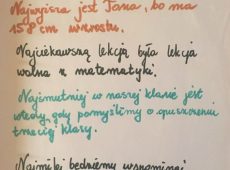 Najwyższa jest Jana, bo ma
158 cm wzrostu.
Najciekawszą lekcją była lekcja
wolna z matematyki.
Najsmutniej w naszej klasie jest
wtedy, gdy pomyślimy o opuszczeniu
trzeciej klasy.
Najmilej będziemy wspominać